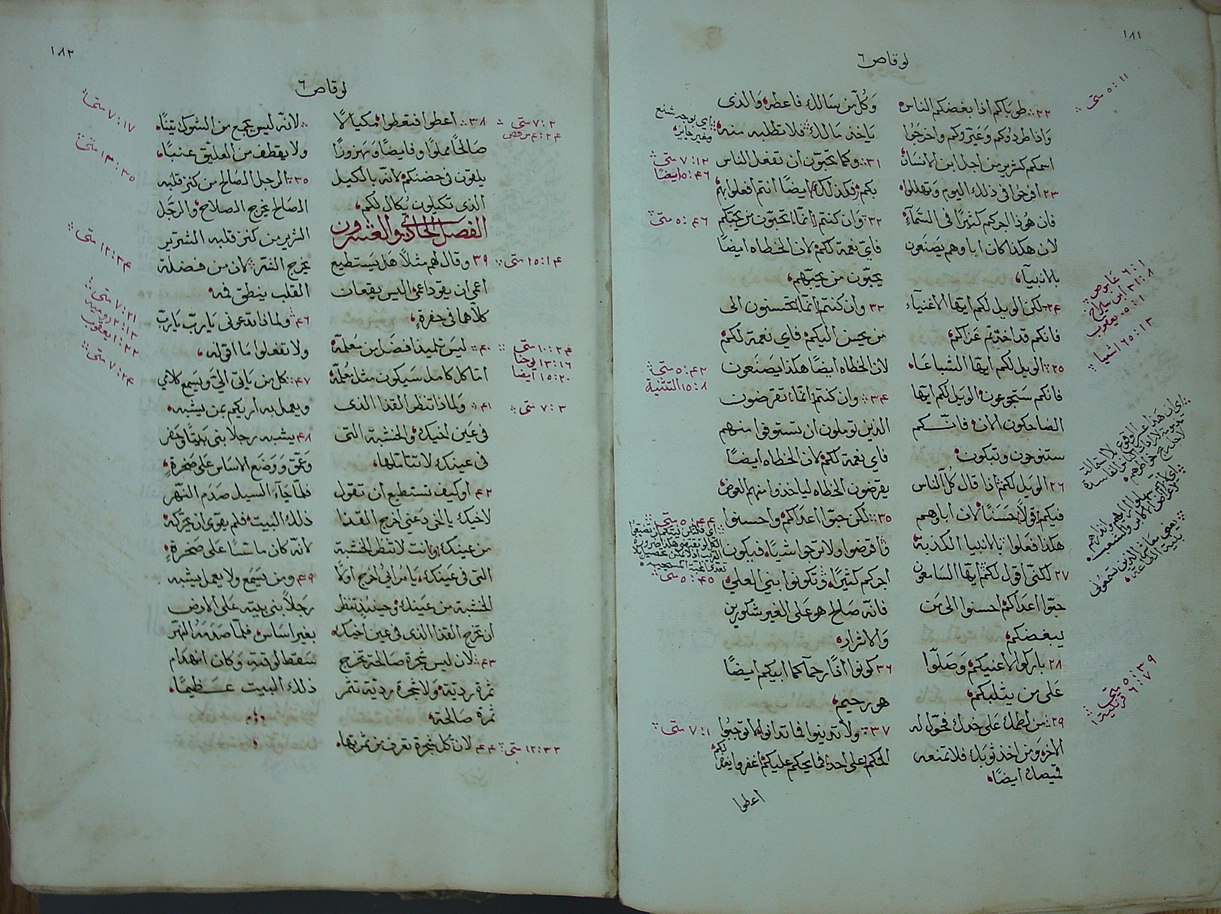 ١٨١
لوقا ص ٦
٢٢ طوباكم اذا بغضكم الناس
واذا طردوكم وعيّروكم واخرجوا
اسمكم كشرير من اجل ابن الانسان
٢٣ افرحوا في ذلك اليوم وتهللوا
فان هوذا اجركم كثيرًا في السمآء
لان هكذا كان اباوهم يصنعون
بالانبيا
٢٤ لكن الويل لكم ايها الاغنيآء
فانكم قد اخذتم عزاكم
٢٥ الويل لكم ايها الشباعا
فانكم ستجوعون الويل لكم ايها
الضاحكون الان فانكم
ستنوحون وتبكون
٢٦ الويل لكم اذا قال كل الناس
فيكم قولًا حسنًا لان اباوهم
هكذا فعلوا بالانبيا الكذبة
٢٧ لكني اقول لكم ايها السامعون
حبّوا اعداكم احسنوا الى من
يبغضكم
٢٨ باركوا لاعنيكم وصلّوا
على من يثلبكم
٢٩ من لطمك على خدك فحوّل له
الاخر ومن اخذ ثوبك فلا تمنعه
قميصك ايضًا
وكل من سالك فاعطه والذي
ياخذ مالك فلا تطلبه منه
٣١ وكما تحبّون ان تفعل الناس
بكم فكذلك ايضًا انتم افعلوا بهم
٣٢ وان كنتم انما تحبون من يحبكم
فايّ نعمة لكم لان الخطاه ايضًا
يحبّون من يحبّهم
٣٣ وان كنتم انما تحسنون الى
من يحسن اليكم فاي نعمة لكم
لان الخطاه ايضًا هكذا يصنعون
٣٤ وان كنتم انما تقرضون
الذين توملون ان تستوفوا منهم
فاي نعمة لكم لان الخطاه ايضًا
يقرضون الخطاه لياخذوا منهم العوض
٣٥ لكن حبّوا اعداكم واحسنوا
واقرضوا ولا ترجوا شيا فيكون
اجركم كثيرًا وتكونوا بني العلي
فانه صالح هو على الغير شكورين
والاشرار
٣٦ كونوا اذًا رحما كما ابيكم ايضًا
هو رحيم
٣٧ ولا تدينوا فما تدانوا لا توجبوا
الحكم على احد فما يحكم عليكم اغفروا يغفر
لكم
اعطوا
١١ : ٥ متى
١٢ : ٧ متى
٤٦ : ٥ متى
٤٢ : ٥ متى
٨ : ١٥ التثنية
٤٤ : ٥ متى
٤٥ : ٥ متى
١ : ٧ متى
٣٩ : ٥ متى
١٨٢
لوقا ص ٦
٣٨ اعطوا فتعطوا مكيالًا
صالحًا مملوا وفايضًا ومهزوزًا
يلقون في حضنكم لانه بالكيل
الذي تكيلون يكال لكم
الفصل الحادي والعشرون
٣٩ وقال لهم مثلًا هل يستطيع
اعمى ان يقود اعمى اليس يقعان
كلاهما في حفرة
٤٠ ليس تلميذ افضل من معلمه
اما كل كامل سيكون مثل معلمه
٤١ ولماذا تنظر القذا الذي
في عين اخيك والخشبة التي
في عينك لا تتاملها
٤٢ او كيف تستطيع ان تقول
لاخيك يا اخي دعني اخرج القذا
من عينك وانت لا تنظر الخشبة
التي في عينك يا مراي اخرج اولًا
الخشبة من عينك وحينيذ تنظر
ان تخرج القذا الذي في عين اخيك
٤٣ لان ليس شجرة صالحة تخرج
ثمرة ردية ولا شجرة ردية تثمر
ثمرة صالحة
٤٤ لان كل شجرة تعرف من ثمرتها
لانه ليس يجمع من الشوك تينًا
ولا يقطف من العليق عنبًا
٤٥ الرجل الصالح من كنز قلبه
الصالح يخرج الصلاح والرجل
الشرير من كنز قلبه الشرير
يخرج الشر لان من فضلة
القلب ينطق فمه
٤٦ ولماذا تدعوني يا رب يا رب
ولا تفعلوا ما اقوله
٤٧ كل من ياتي اليّ ويسمع كلامي
ويعمل به اريكم بمن يشبه
٤٨ يشبه رجلًا بنى بيتًا وحفر
وعمّق ووضع الاساس على صخرة
فلما جآء السيل صدم النهر
ذلك البيت فلم يقوى ان يحركه
لانه كان ماسسًا على صخرة
٤٩ ومن يسمع ولا يعمل يشبه
رجلًا بنى بيته على الارض
بغير اساس فلما صدمه النهر
سقط لوقته وكان انهدام
ذلك البيت عظيمًا
٢ : ٧ متى
٢٤ : ٤ مرقس
١٤ : ١٥ متى
٢٤ : ١٠ متى
١٦ : ١٣ يوحنا
٢٠ : ١٥ ايضًا
٣ : ٧ متى
٣٣ : ١٢ متى
١٧ : ٧ متى
٣٥ : ١٢ متى
٣٤ : ١٢ متى
٢١ : ٧ متى
١٣ : ٢ رومية
٢٢ : ١ يعقوب
٢٤ : ٧ متى